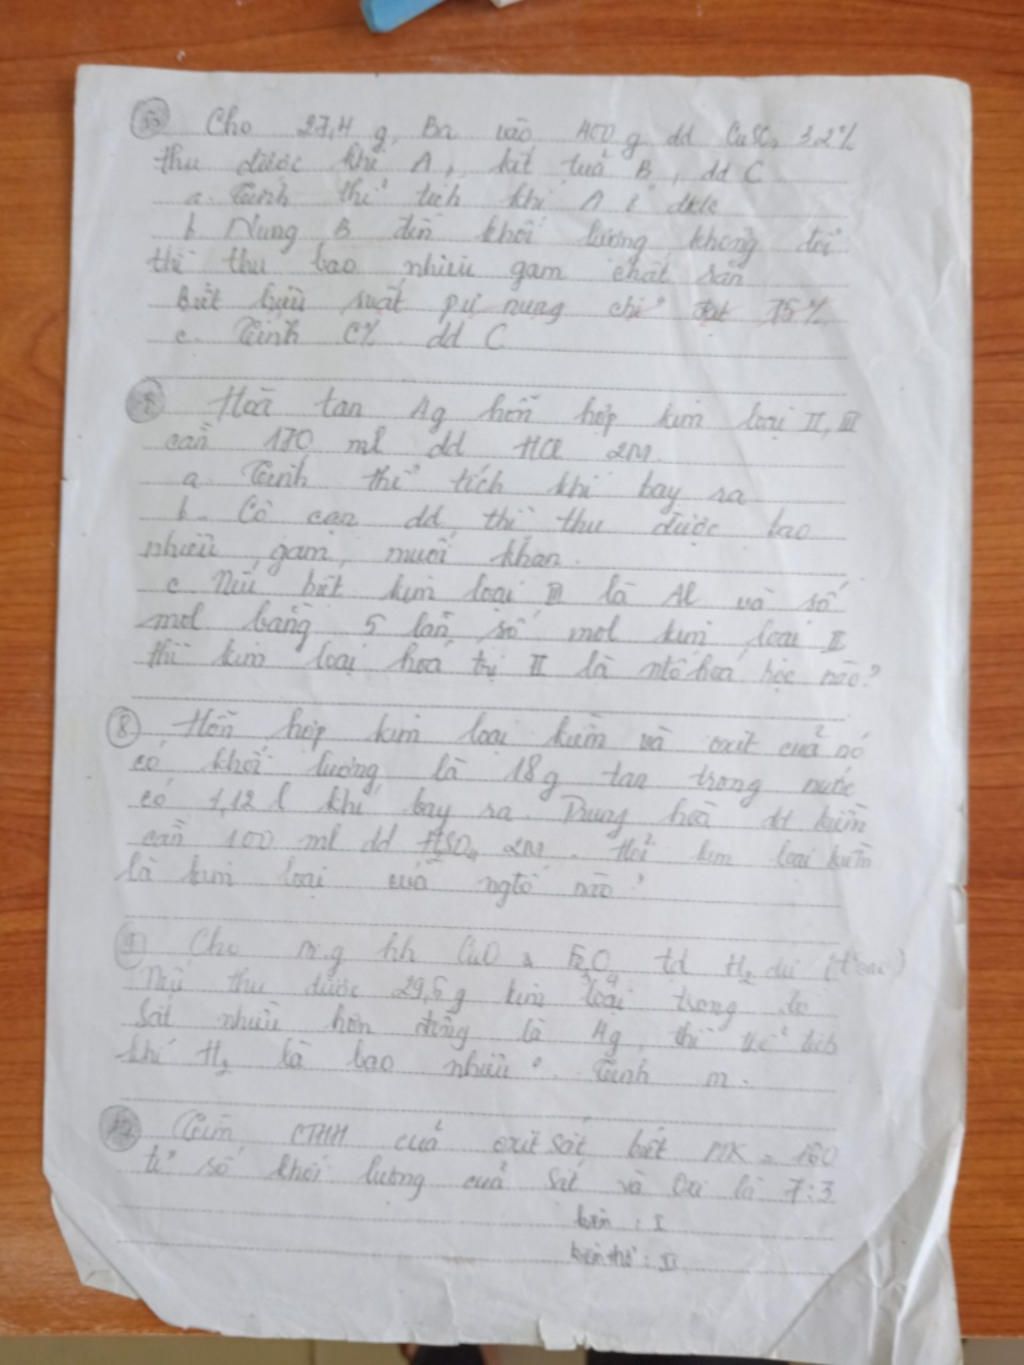 Cho 27,4 g Ba vào 400 g dd CuSO4 3,2%
thu được khí A, kết tủa B, dd C
a. Tính thể tích khí A ở đktc
b. Nung B đến khối lượng không đổi
thì thu bao nhiêu gam chất rắn
Biết hiệu suất pứ nung chỉ đạt 75%
c. Tính C% dd C
Hoà tan 4g hỗn hợp kim loại II, III
cần 170 ml dd HCl 2M
a. Tính thể tích khí bay ra
b. Cô cạn dd, thì thu được bao
nhiêu gam muối khan.
c. Nếu biết kim loại III là Al và số
mol bằng 5 lần số mol kim loại II
thì kim loại hoá trị II là ntố hoá học nào?
8 Hỗn hợp kim loại kiềm và oxit của nó
có khối lượng là 18g tan trong nước
có 1,12 l khí bay ra. Trung hoà dd kiềm
cần 100 ml dd H2SO4 2M. Hỏi kim loại kiềm
là kim loại của ngtố nào?
Cho m.g hh CuO & Fe3O4 td H2 dư (t° cao)
Nếu thu được 29,6g kim loại trong đó
sắt nhiều hơn đồng là 4g, thì thể tích
khí H2 là bao nhiêu. Tính m.
Tìm CTHH của oxit sắt biết PTK = 160
tỉ số khối lượng của sắt và Oxi là 7:3
kiềm : I
kiềm thổ : II